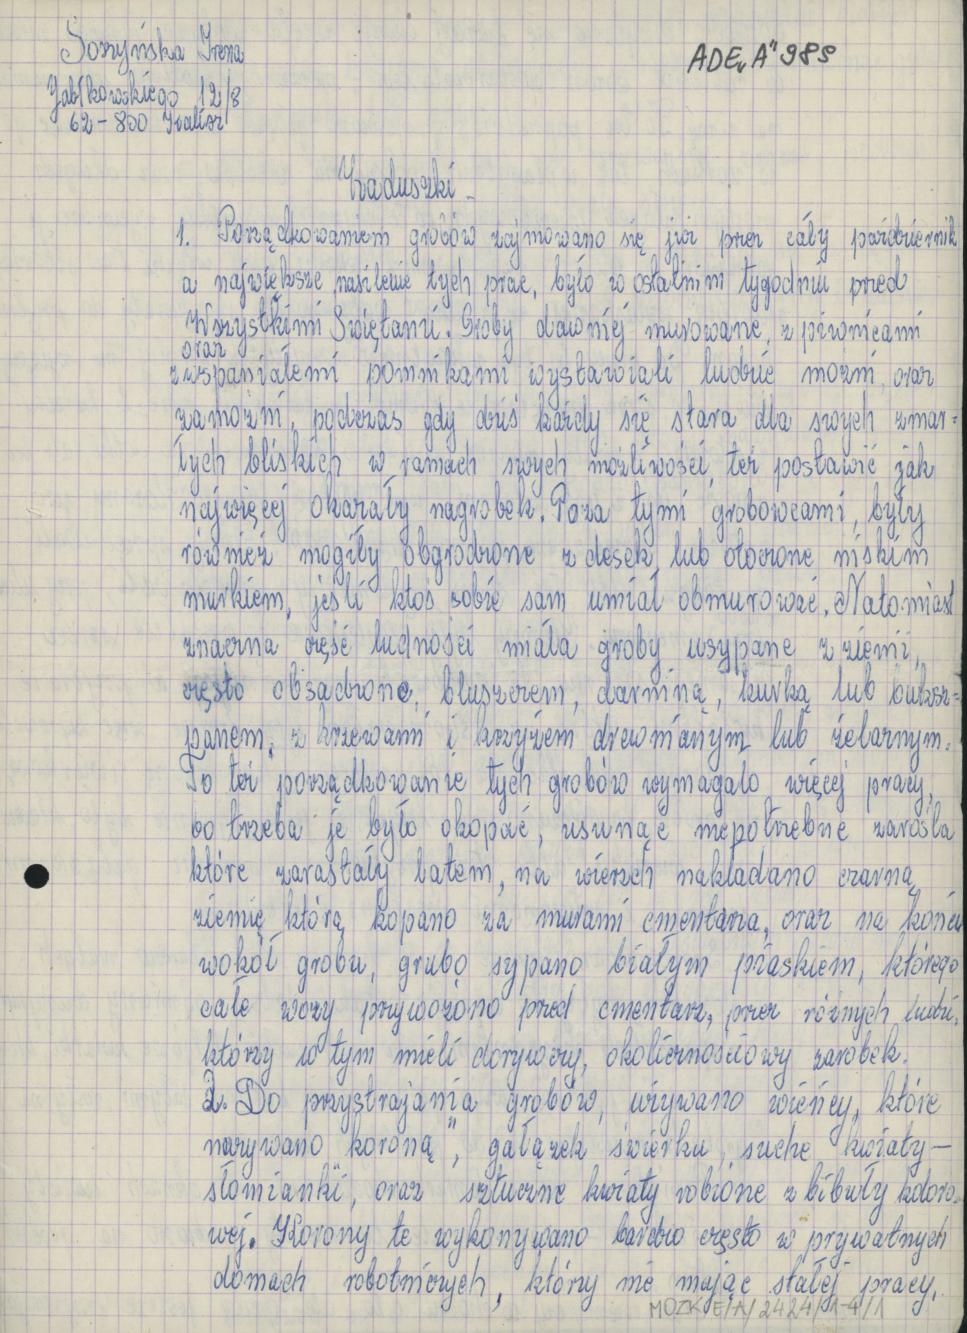 Soszyńska Irena
ADE „A" 985
Jabłkowskiego 12/8
62-800 Kalisz
Zaduszki.
1. Porządkowaniem grobów zajmowano się już przez cały październik
a największe nasilenie tych prac, było w ostatnim tygodniu przed
Wszystkimi Świętami. Groby dawniej murowane, z piwnicami
oraz
z wspaniałemi pomnikami wystawiali ludzie możni, oraz
zamożni, podczas gdy dziś każdy się stara dla swych zmar=
łych bliskich w ramach swych możliwości, też postawić jak
najwięcej okazały nagrobek. Poza tymi grobowcami, były
również mogiły obgrodzone z desek lub otoczone niskim
murkiem, jeśli ktoś sobie sam umiał obmurować. Natomiast
znaczna część ludności miała groby usypane z ziemi,
często obsadzone, bluszczem, darniną, kurką lub buksz=
panem, z krzewami i krzyżem drewnianym lub żelaznym.
To też porządkowanie tych grobów wymagało więcej pracy,
bo trzeba je było okopać, usunąć niepotrzebne zarośla
które zarastały latem, na wierzch nakładano czarną
ziemię którą kopano za murami cmentarza, oraz na końcu
wokół grobu, grubo sypano białym piaskiem, którego
całe wozy przywożono przed cmentarz, przez różnych ludzi,
którzy w tym mieli dorywczy, okolicznościowy zarobek.
2. Do przystrajania grobów, używano wieńcy, które
nazywano koroną", gałązek świerku, suche kwiaty –
słomianki", oraz sztuczne kwiaty robione z bibuły koloro=
wej. Korony te wykonywano bardzo często w prywatnych
domach robotniczych, którzy nie mając stałej pracy,
MOZK/E/A/2424/1-4/1